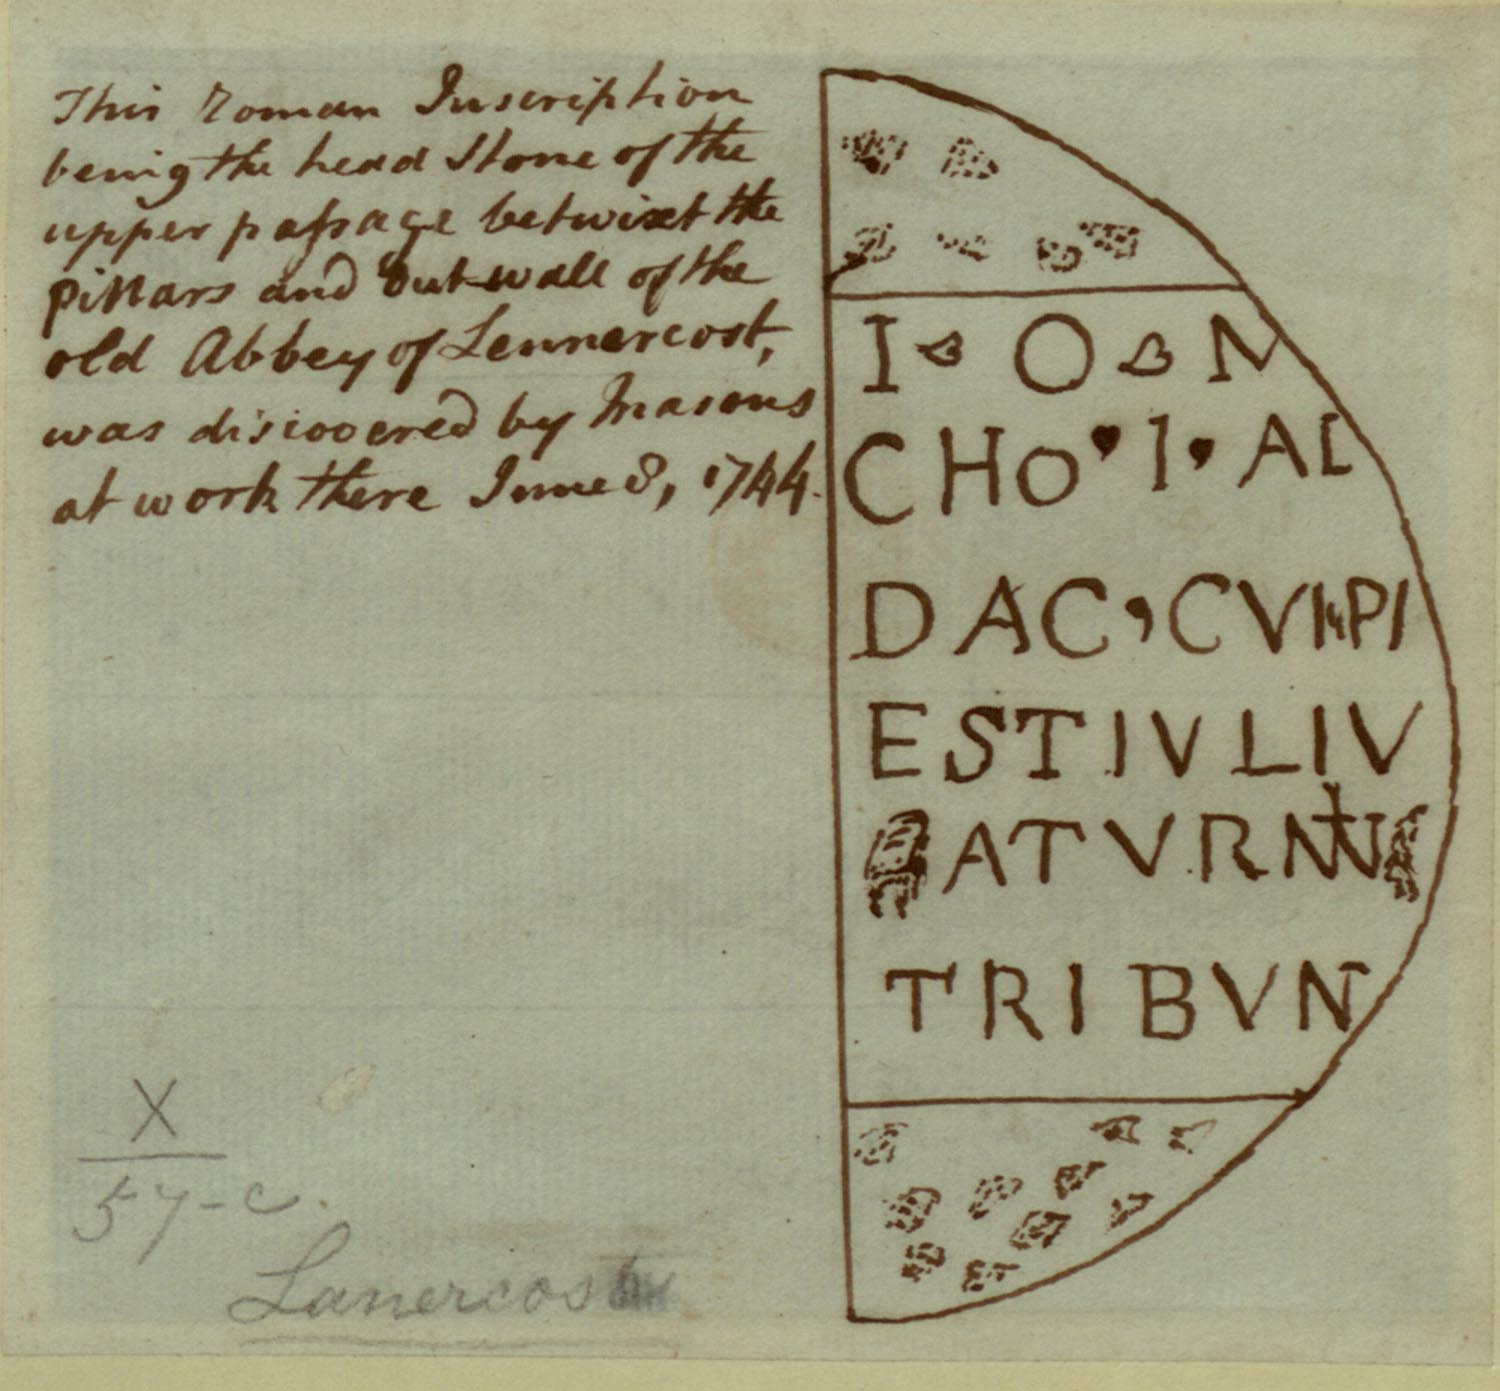 This Roman Inscription
being the head Stone of the
upper passage betwixt the
Pillars and Out-wall of the
old Abbey of Lennercost,
was discovered by Masons
at work there June 8, 1744.
I O M
CHO I AL
DAC CVI PI
EST IVLIV
ATVRN
TRIBVN
X
57-c.
Lanercost